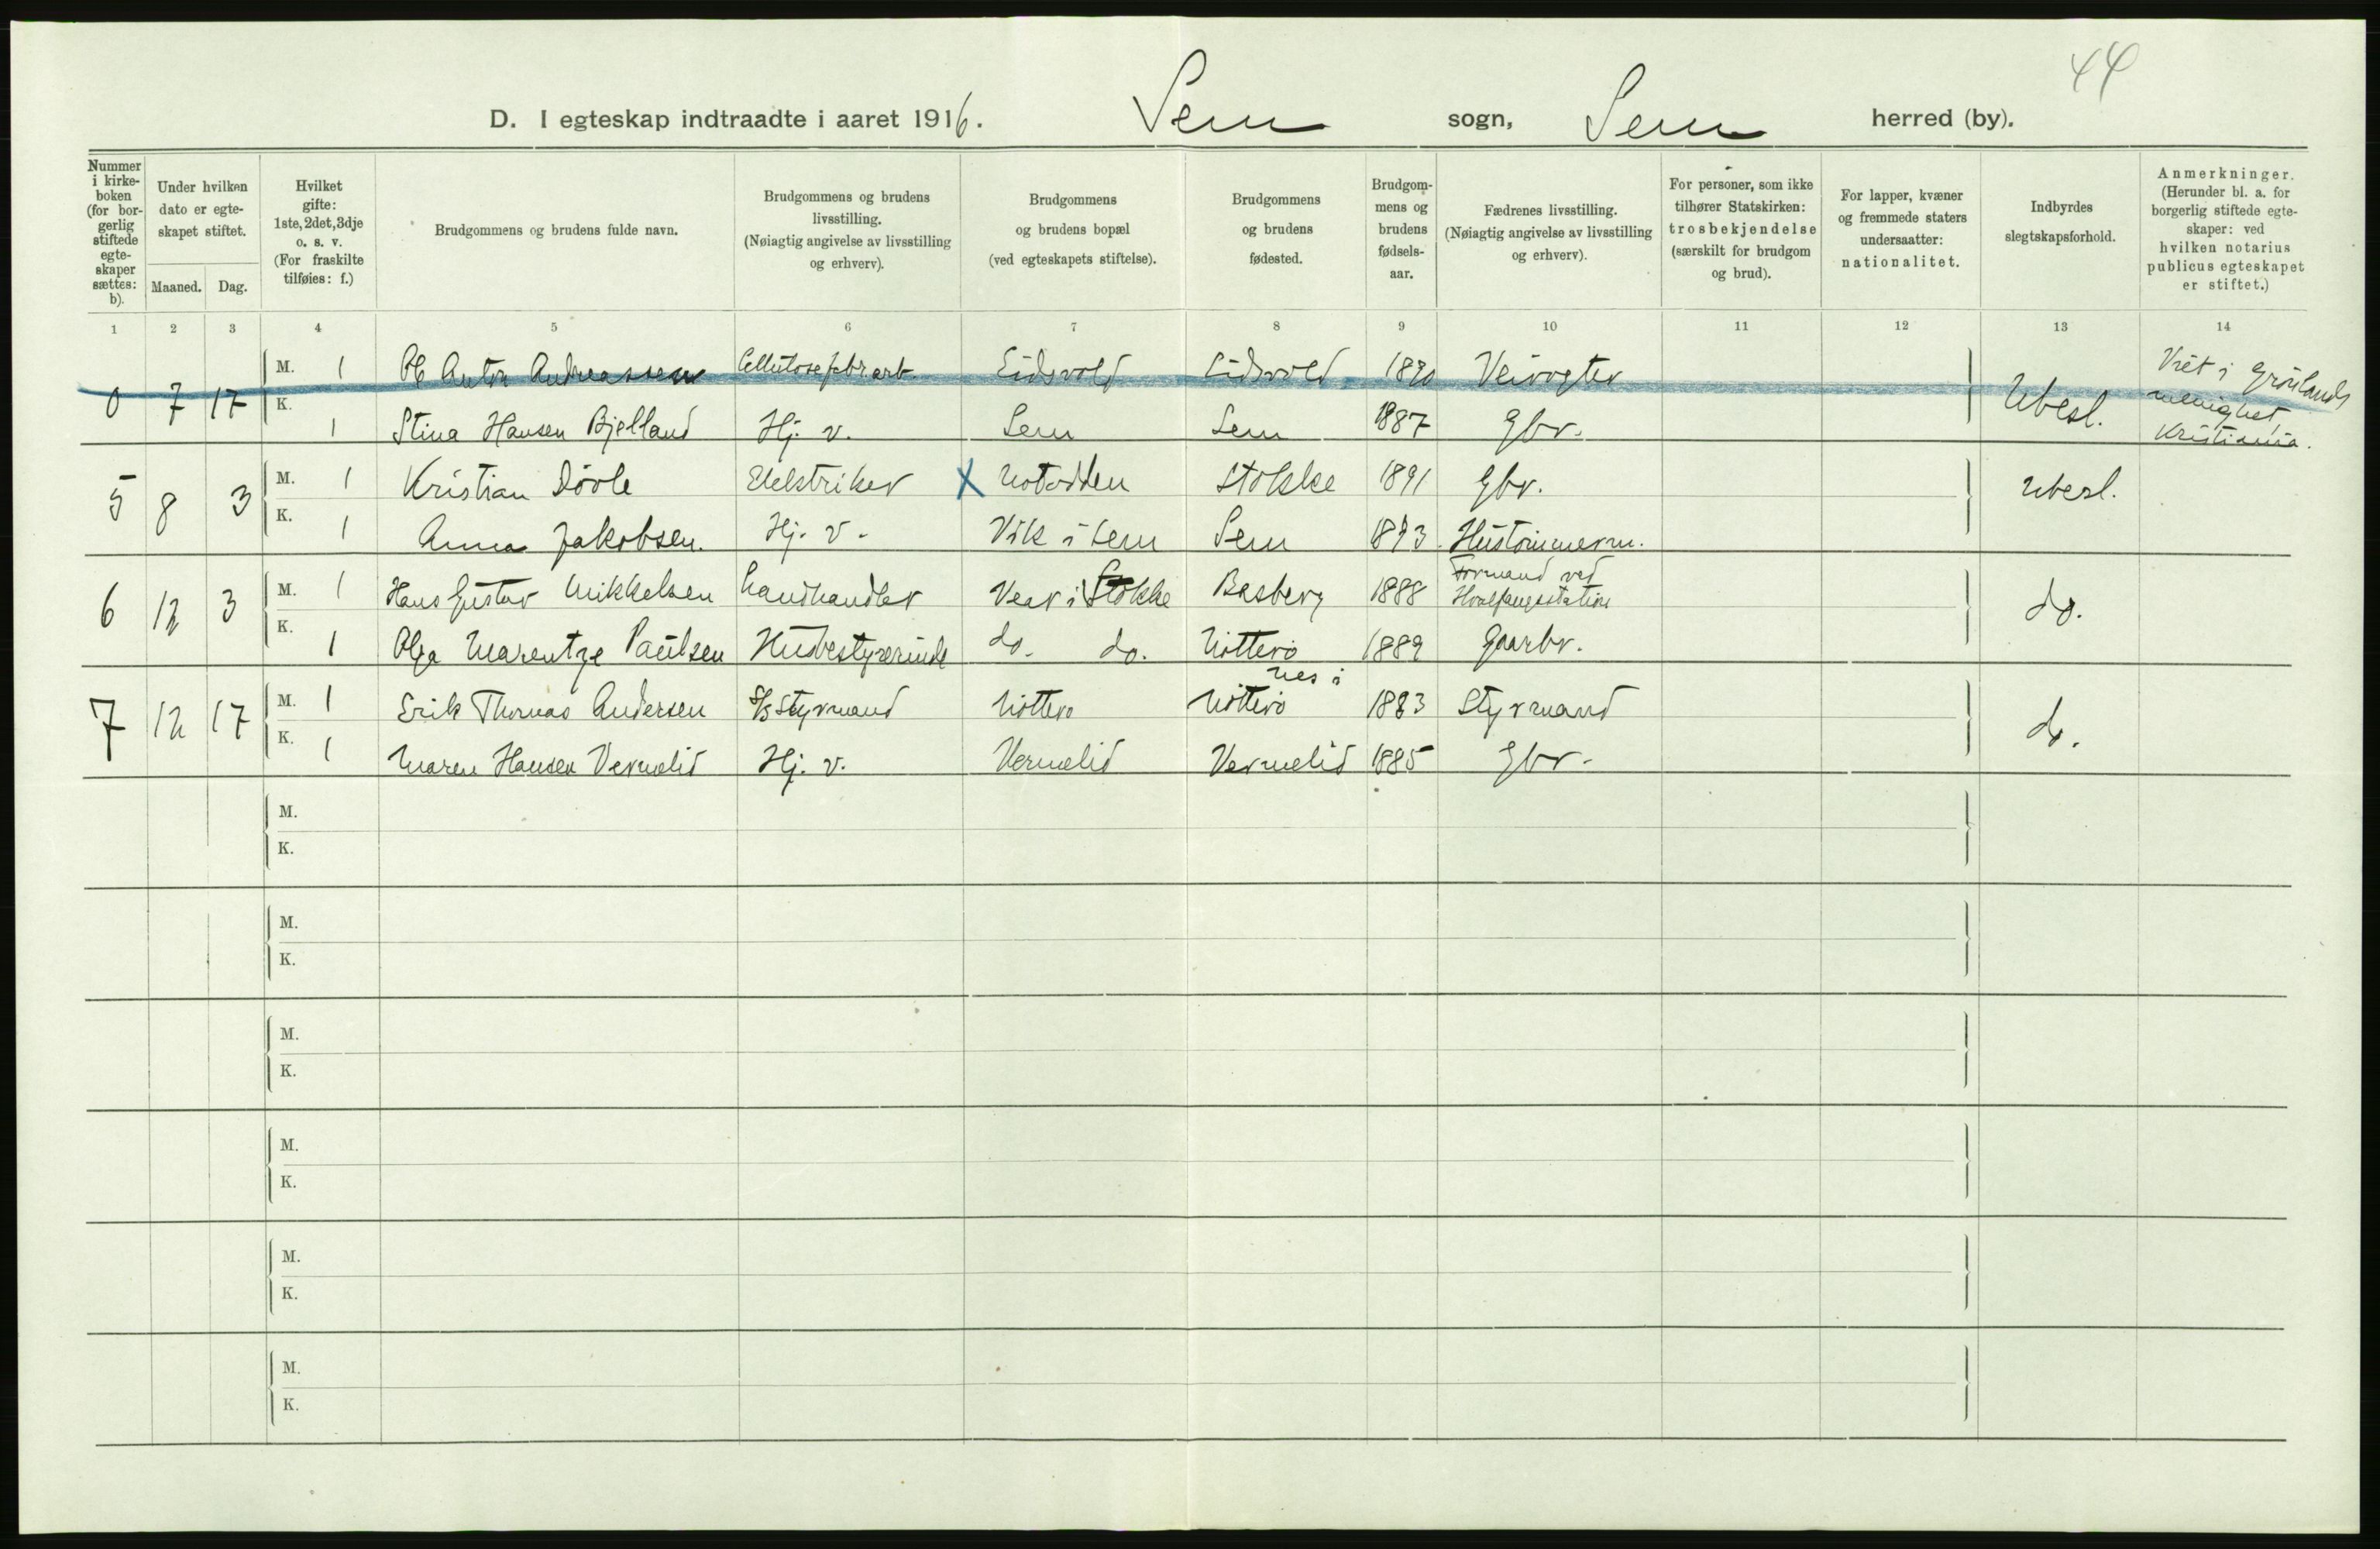 44
D. I egteskap indtraadte i aaret 1916. Sem sogn, Sem herred (by).
Nummer i kirke-boken (for bor-gerlig stiftede egte-skaper sættes: b).
Under hvilken dato er egte-skapet stiftet.
Maaned. Dag.
Hvilket gifte: 1ste, 2det, 3dje o. s. v. (For fraskilte tilføies: f.)
Brudgommens og brudens fulde navn.
Brudgommens og brudens livsstilling. (Nøiagtig angivelse av livsstilling og erhverv).
Brudgommens og brudens bopæl (ved egteskapets stiftelse).
Brudgommens og brudens fødested.
Brudgom-mens og brudens fødsels-aar.
Fædrenes livsstilling. (Nøiagtig angivelse av livsstilling og erhverv).
For personer, som ikke tilhører Statskirken: trosbekjendelse (særskilt for brudgom og brud).
For lapper, kvæner og fremmede staters undersaatter: nationalitet.
Indbyrdes slegtskapsforhold.
Anmerkninger. (Herunder bl. a. for borgerlig stiftede egte-skaper: ved hvilken notarius publicus egteskapet er stiftet.)
1 2 3 4 5 6 7 8 9 10 11 12 13 14
M. 1 Ole Anton Andreassen Cellulosefabr.arb. Eidsvold Eidsvold 1890 Veivogter
0 7 17 Ubesl. Viet i Grønlands menighet, Kristiania.
K. 1 Stina Hansen Bjelland Hj. v. Sem Sem 1887 Gbr.
M. 1 Kristian Dövle Elektriker X Notodden Stokke 1891 Gbr.
5 8 3 Ubesl.
K. 1 Anna Jakobsen. Hj. v. Vik i Sem Sem 1893 Hustömmerm.
M. 1 Hans Gustav Mikkelsen Landhandler Vear i Stokke Basberg 1888 Formand ved Hvalfangststation
6 12 3 do.
K. 1 Olga Marentze Paulsen Husbestyrerinde do. do. Nötterö 1889 Gaarbr.
M. 1 Erik Thomas Andersen S/S Styrmand Nötterö Nes i Nötterö 1883 Styrmand
7 12 17 do.
K. 1 Maren Hansen Vermelid Hj. v. Vermelid Vermelid 1885 Gbr.
M.
K.
M.
K.
M.
K.
M.
K.
M.
K.
M.
K.